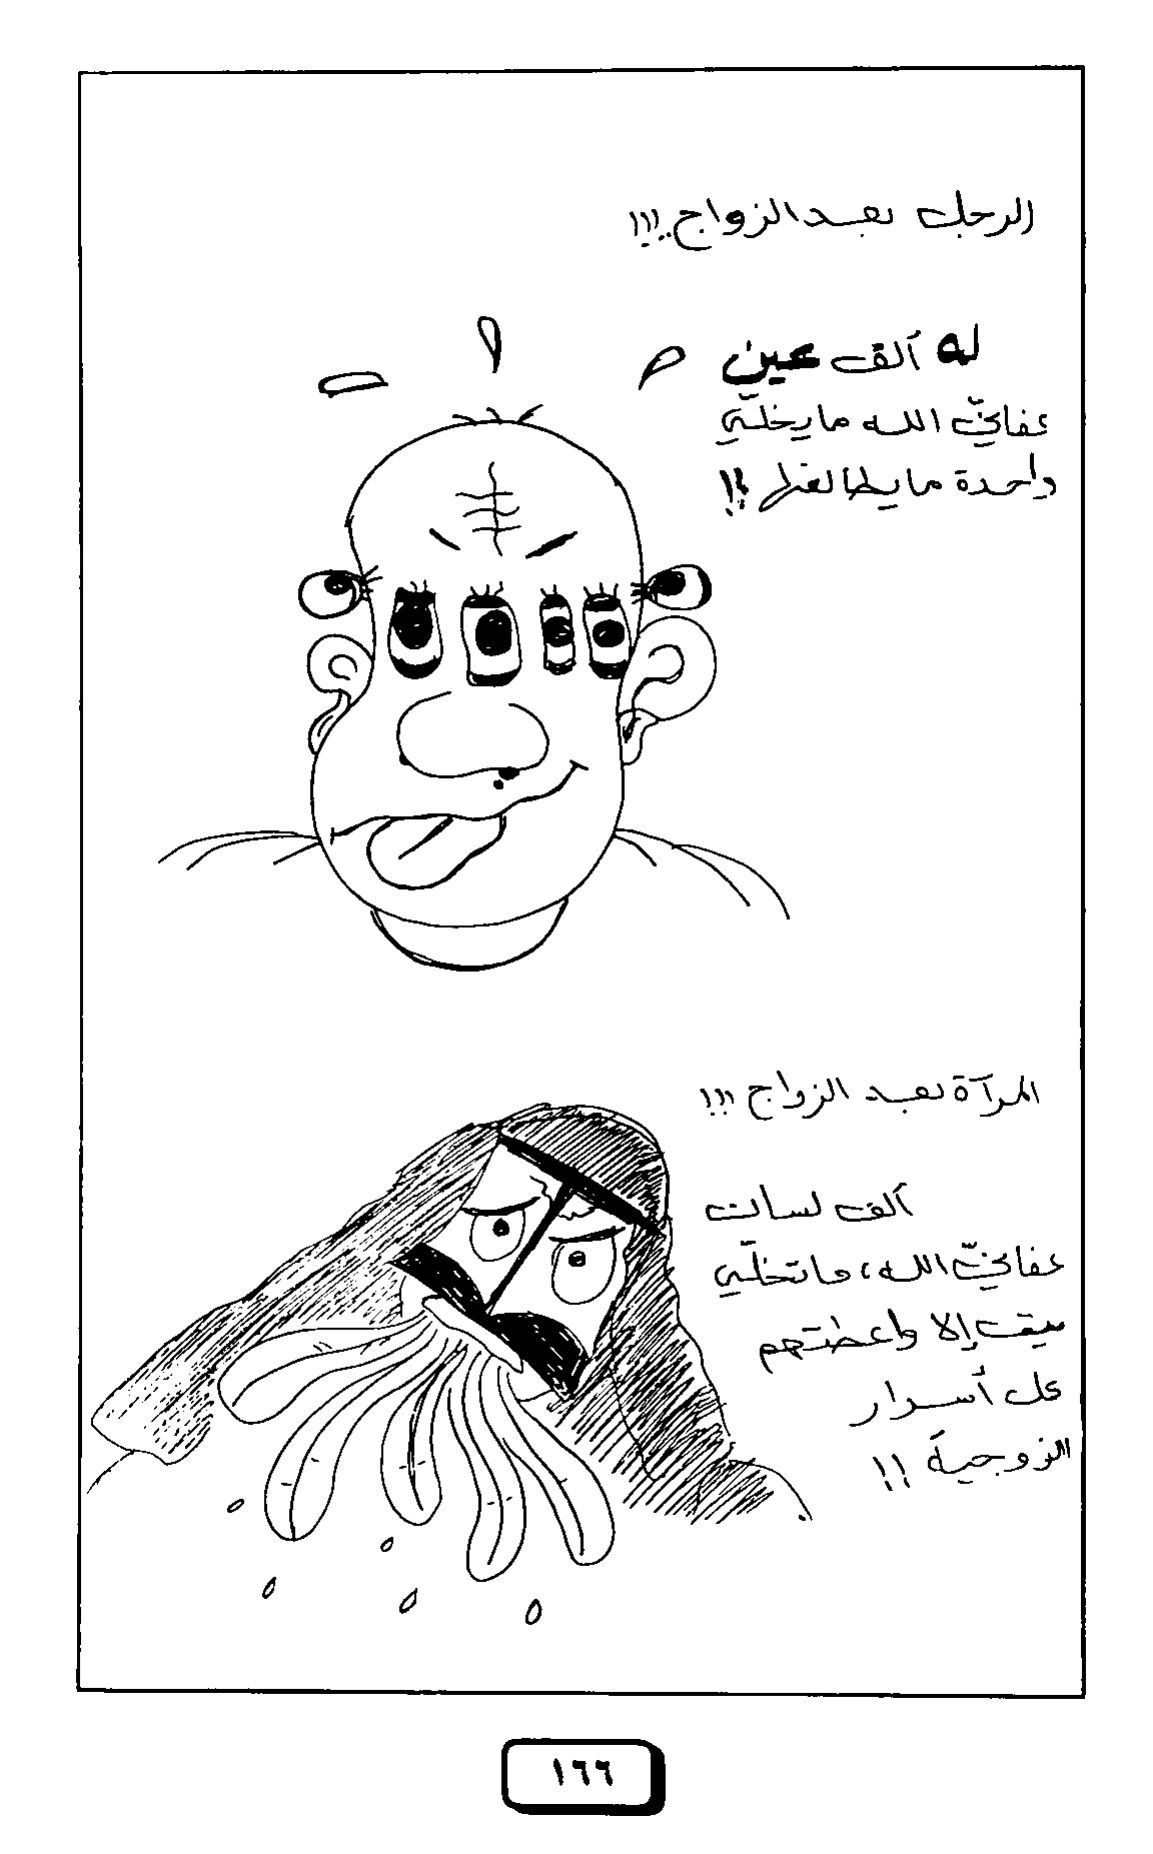 الرجل بعد الزواج..!!!
له ألف عين
عفانيّ الله ما يخلّي
واحدة ما يطالعها !!
المرآة بعد الزواج !!!
ألف لسان
عفانيّ الله، ما تخلّي
بيت إلا واعطتهم
كل أسرار
الزوجية !!
١٦٦